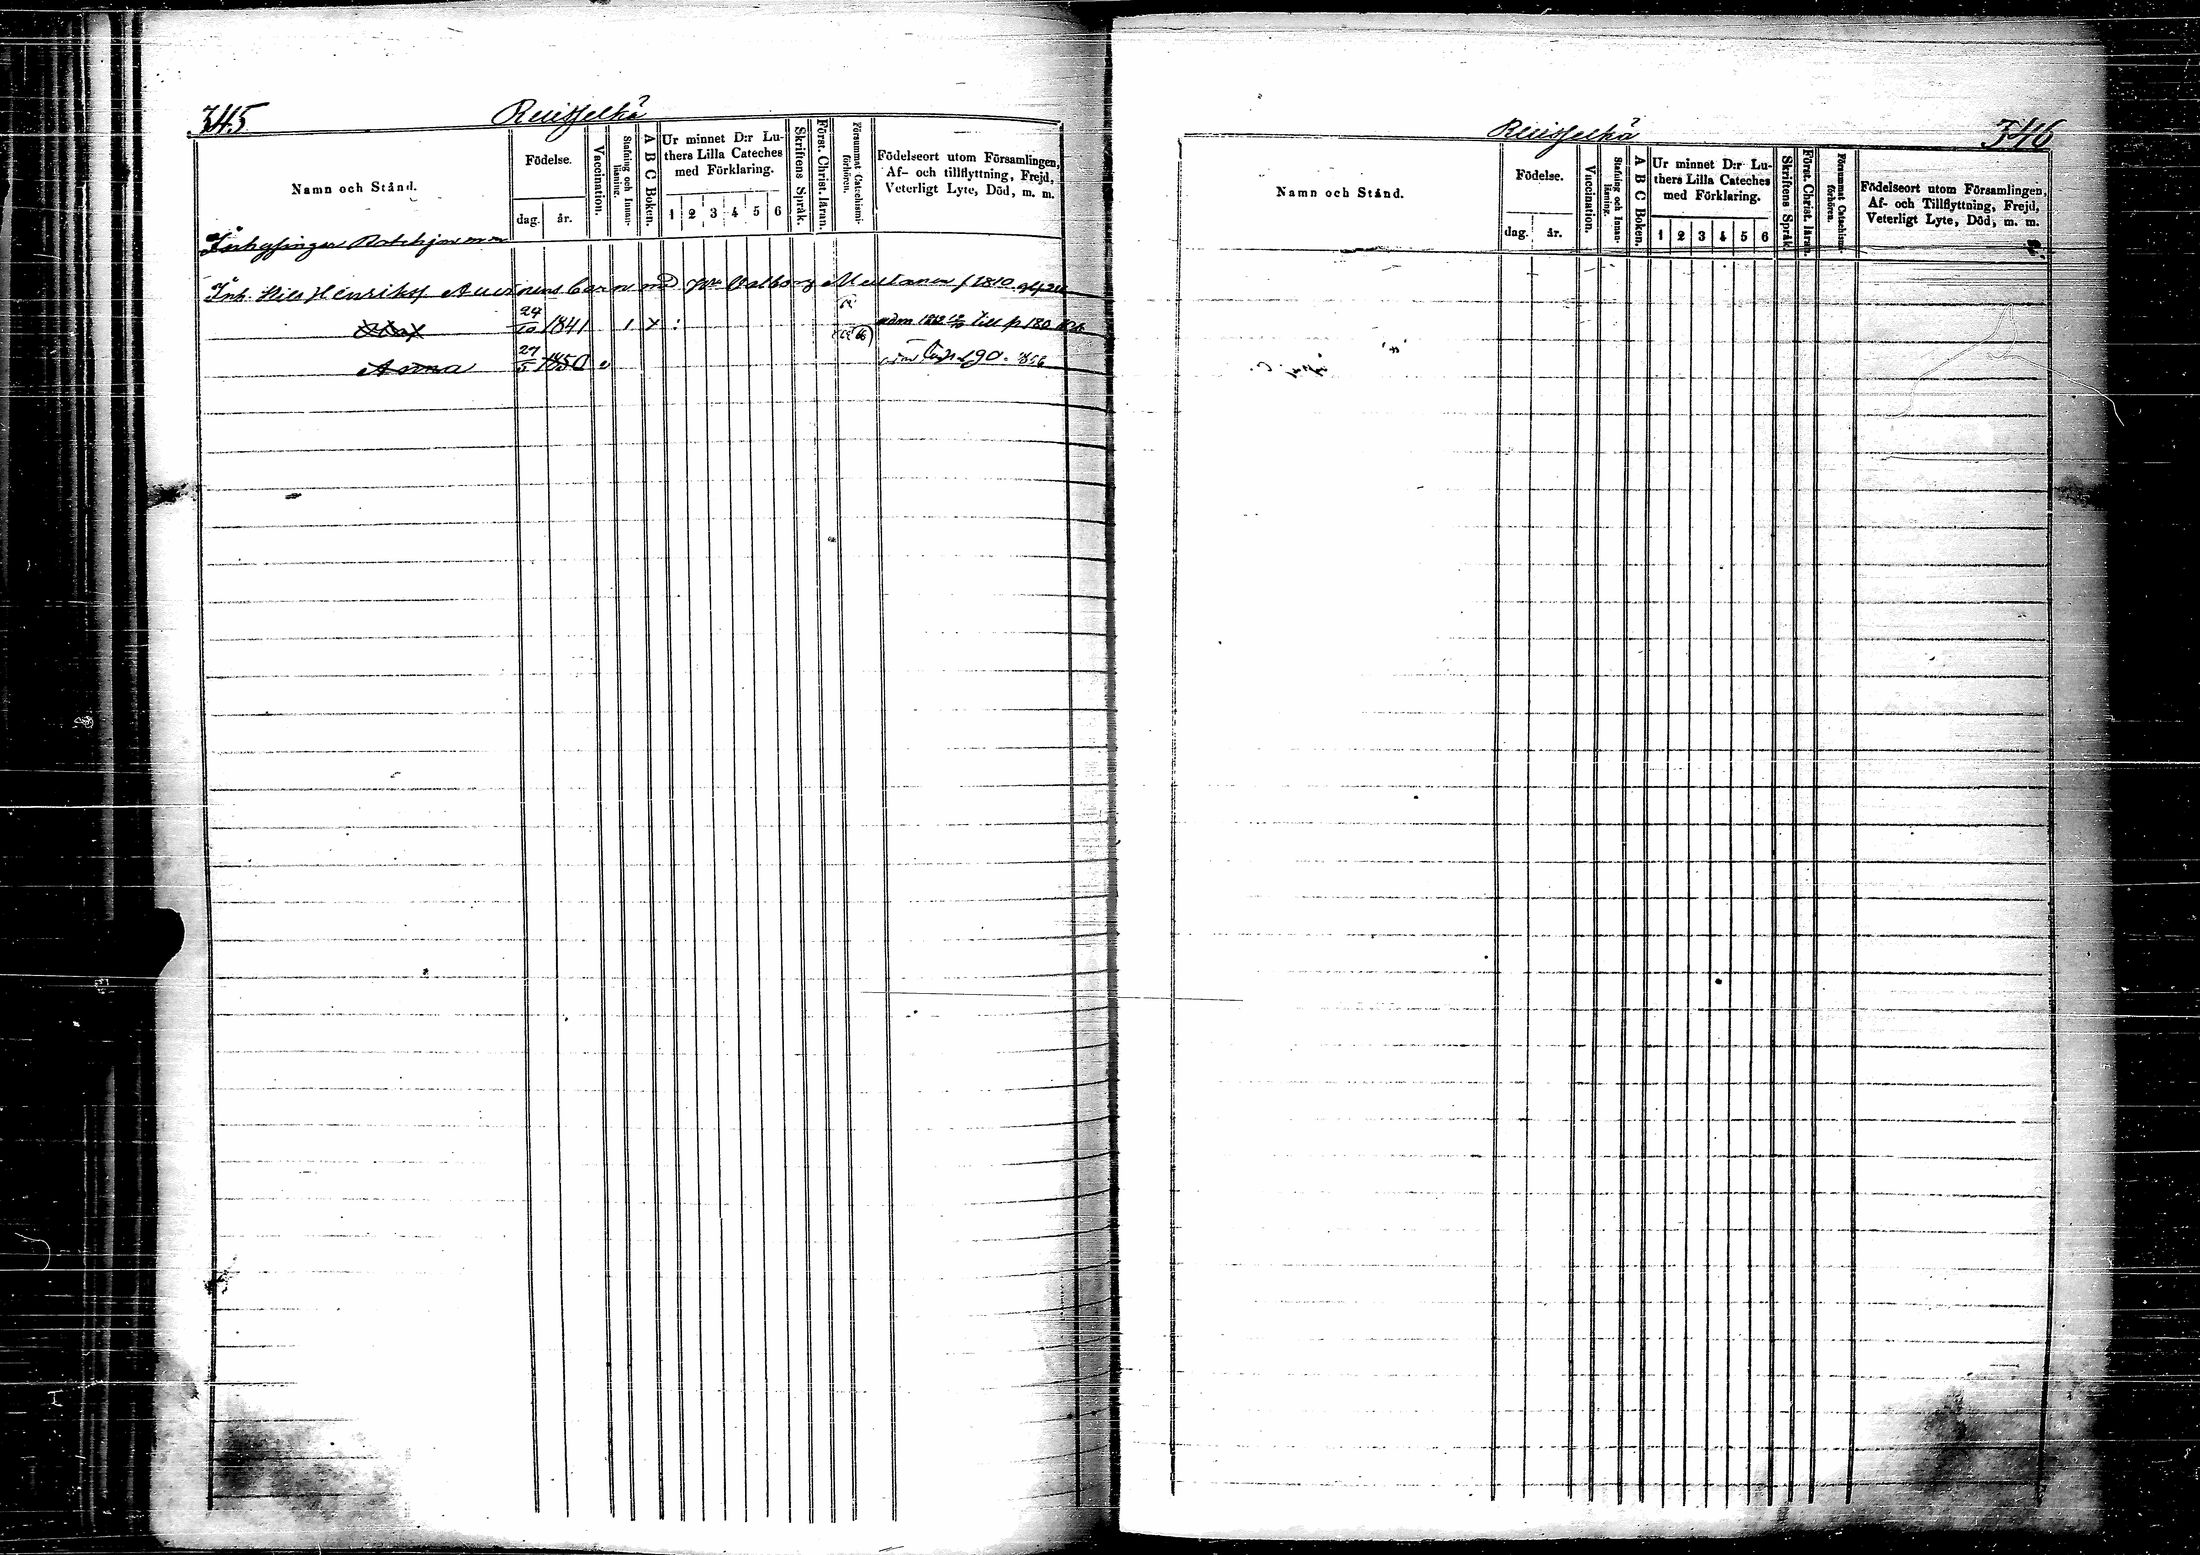 345
Ruisselkä
Namn och Stånd.
Födelse.
dag. år.
Vaccination.
Stafning och Innan-
läsning.
A B C Boken.
Ur minnet D:r Lu-
thers Lilla Cateches
med Förklaring.
1 2 3 4 5 6
Skriftens Språk.
Först. Christ. läran.
Försummat Catechismi-
förhören.
Födelseort utom Församlingen,
Af- och tillflyttning, Frejd,
Veterligt Lyte, Död, m. m.
Inh. Nils Henrikss Auvinens barn md Valborg 1810
24/10 1841 1 x : till p 180
Anna 27/5 1850 190. 1856
Ruisselkä
346
Namn och Stånd.
Födelse.
dag. år.
Vaccination.
Stafning och Innan-
läsning.
A B C Boken.
Ur minnet D:r Lu-
thers Lilla Cateches
med Förklaring.
1 2 3 4 5 6
Skriftens Språk.
Först. Christ. läran.
Försummat Catechismi-
förhören.
Födelseort utom Församlingen,
Af- och Tillflyttning, Frejd,
Veterligt Lyte, Död, m. m.